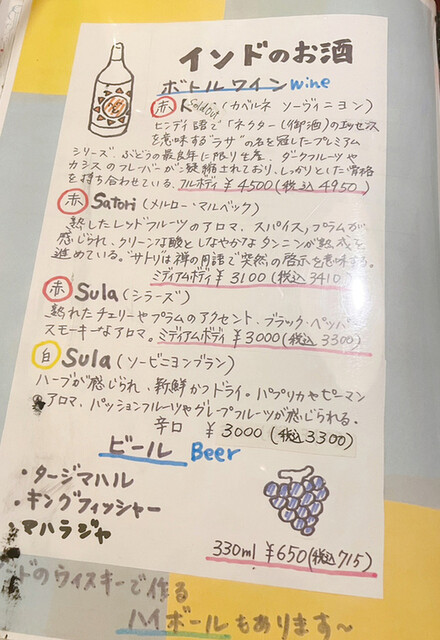 インドのお酒
ボトルワイン Wine
赤 Sold out (カベルネ ソーヴィニヨン)
ヒンディ語で「ネクター(御酒)のエッセンス
を意味する"ラサ"の名を冠したプレミアム
シリーズ、ぶどうの最良年に限り生産、ダークフルーツや
カシスのフレーバーが凝縮されており、しっかりとした骨格
を持ち合わせている。フルボディ ¥4500(税込4950)
赤 Satori (メルロー・マルベック)
熟したレッドフルーツのアロマ、スパイス、プラムが
感じられ、クリーンな酸としなやかなタンニンが熟成を
進めている。"サトリ"は禅の用語で突然の啓示を意味する。
ミディアムボディ ¥3100(税込3410)
赤 Sula (シラーズ)
熟れたチェリーやプラムのアクセント、ブラックペッパー
スモーキーなアロマ。ミディアムボディ ¥3000(税込3300)
白 Sula (ソービニヨンブラン)
ハーブが感じられ、新鮮かつドライ。パプリカやピーマン
アロマ、パッションフルーツやグレープフルーツが感じられる。
辛口 ¥3000(税込3300)
ビール Beer
・タージマハル
・キングフィッシャー
マハラジャ
330ml ¥650(税込715)
ドのウィスキーで作る
ハイボールもあります〜